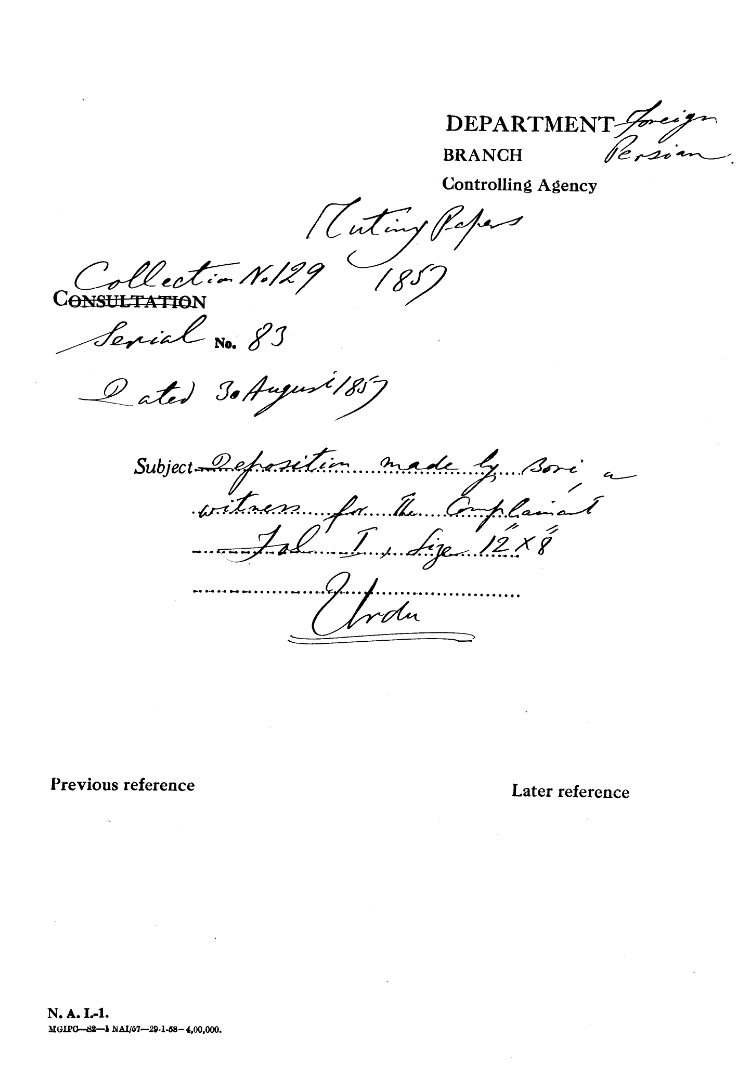 DEPARTMENT Foreign
BRANCH Persian
Controlling Agency
Mutiny Papers
Collection No 129 1857
CONSULTATION
Serial No. 83
Dated 30 August 1857
Subject Deposition made by Bori, a
witness for the Complainant
Fol I, Size 12" x 8"
Urdu
Previous reference
Later reference
N. A. I.-1.
MGIPC—82—1 NAI/57—29-1-58—4,00,000.